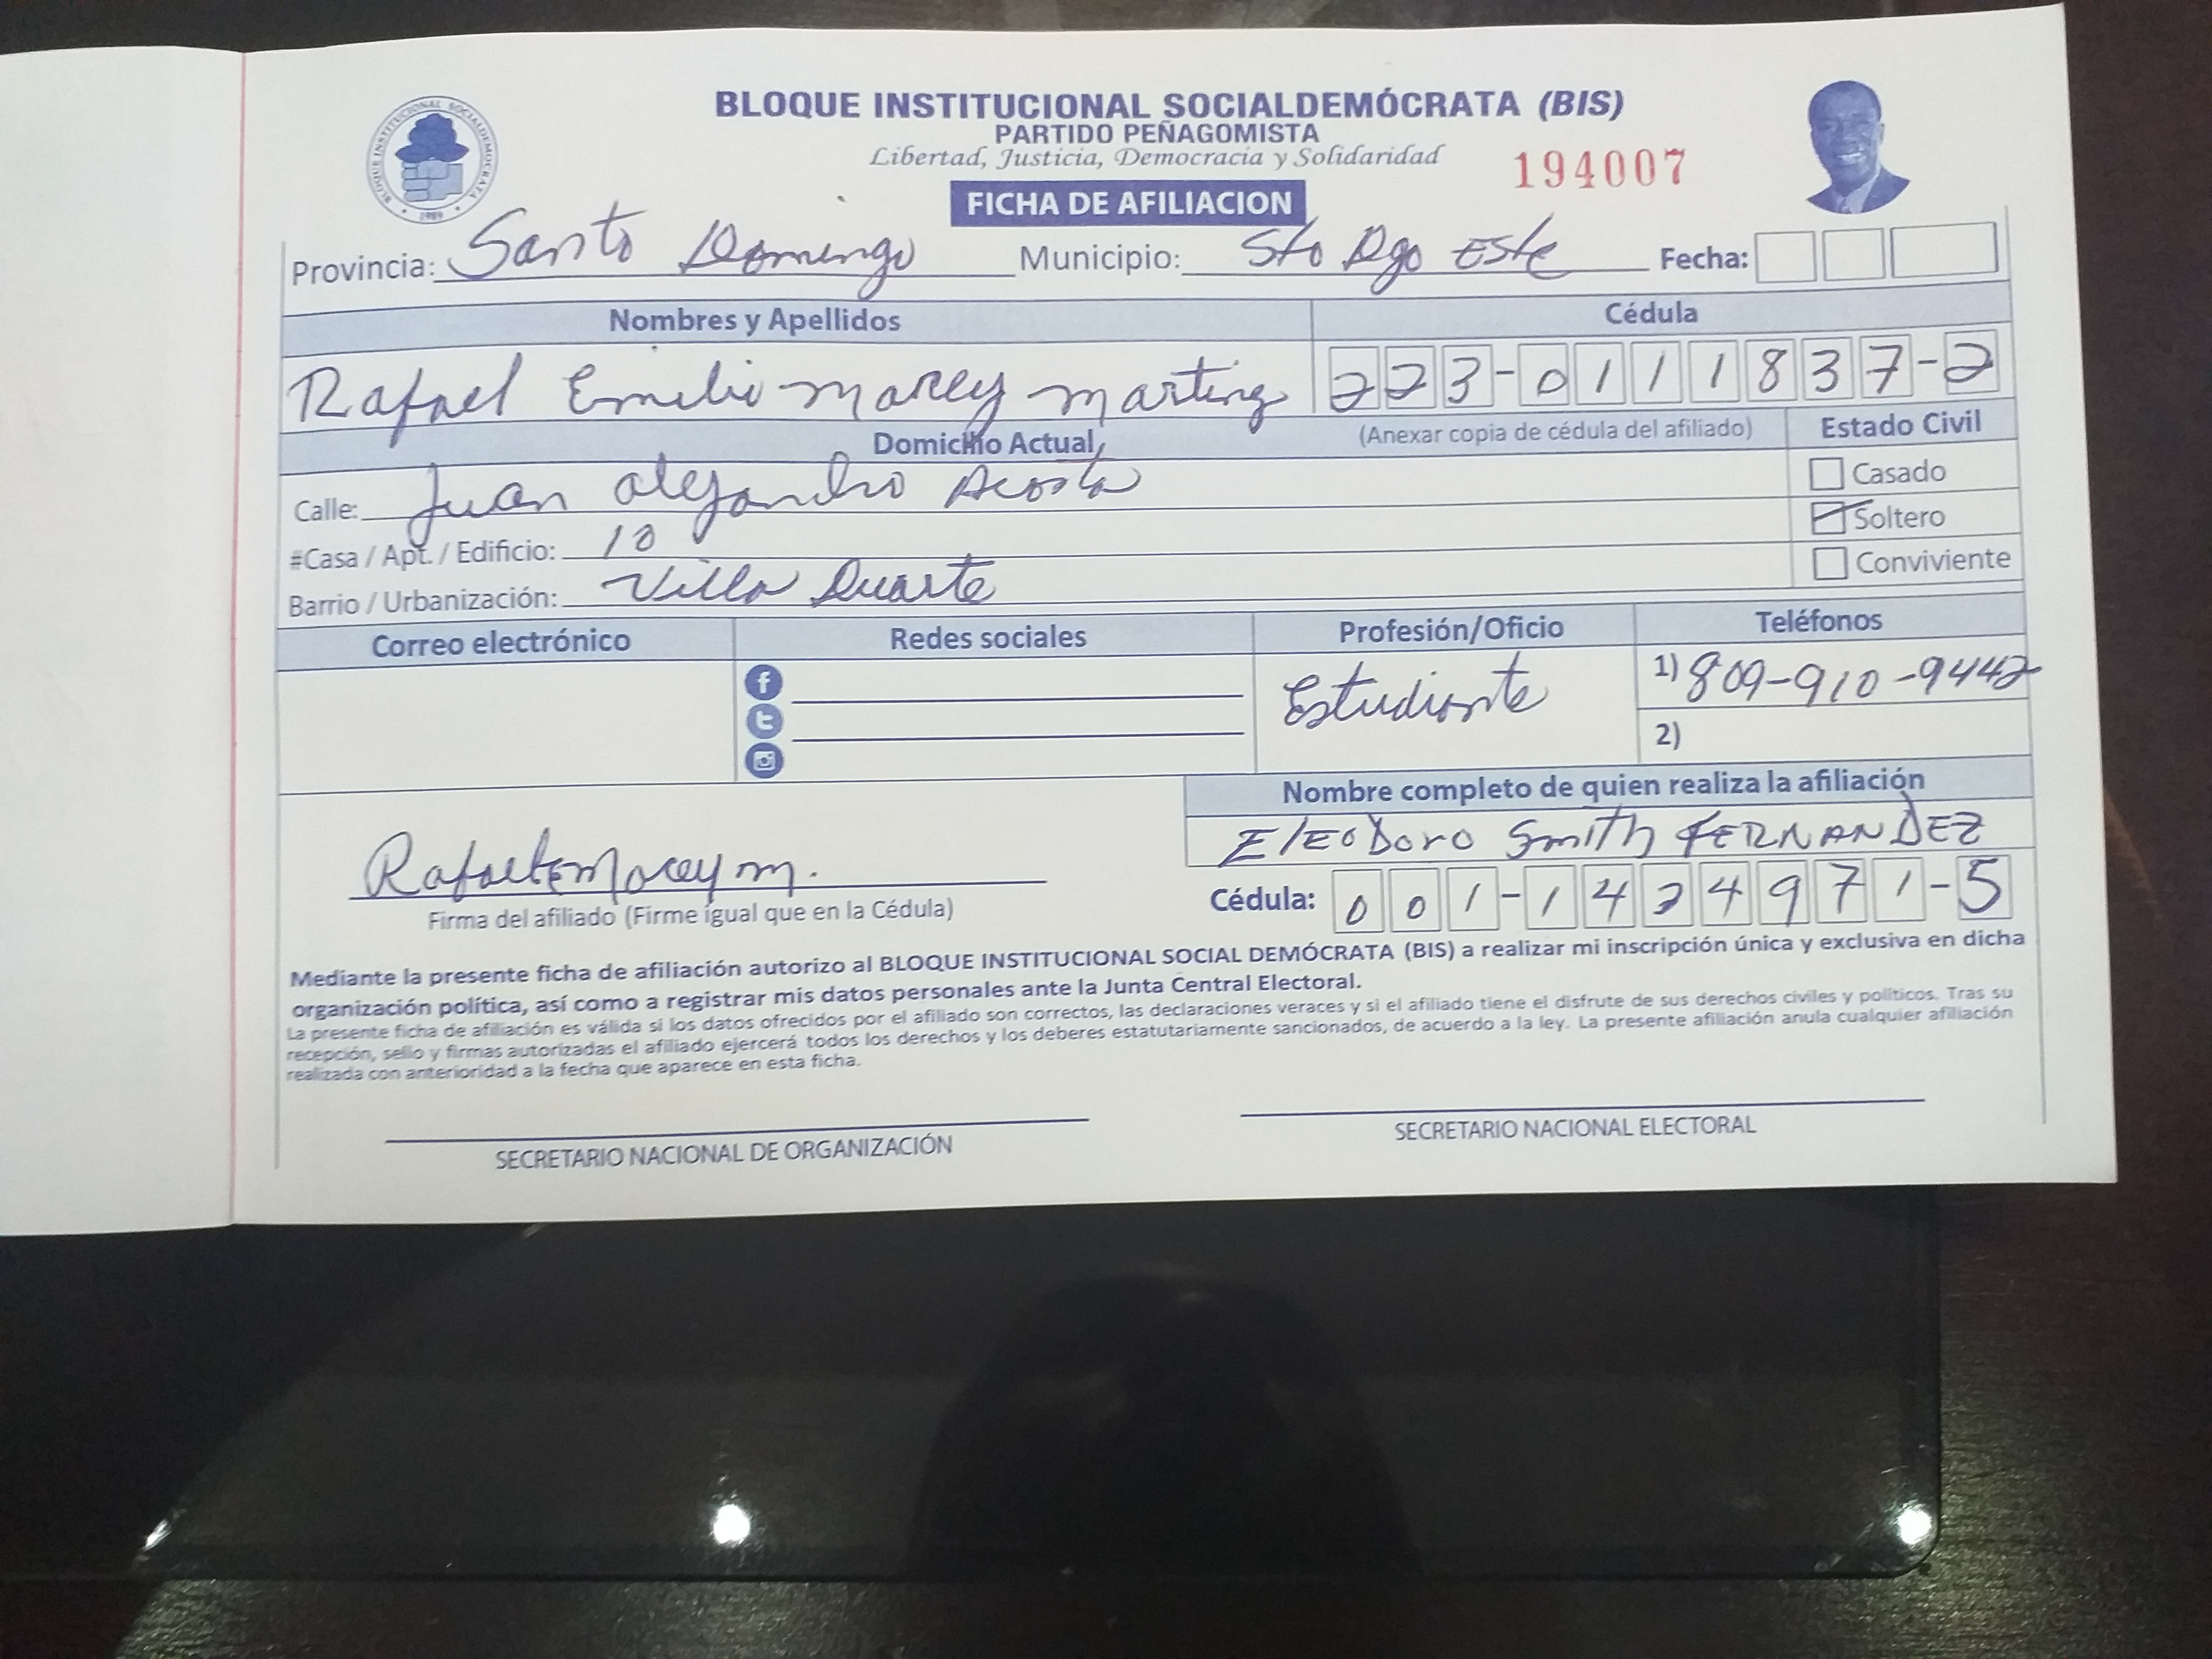 BLOQUE INSTITUCIONAL SOCIALDEMÓCRATA (BIS)
PARTIDO PEÑAGOMISTA
Libertad, Justicia, Democracia y Solidaridad
194007
BLOQUE INSTITUCIONAL SOCIALDEMOCRATA
1989
FICHA DE AFILIACION
Provincia: Santo Domingo Municipio: Sto Dgo Este Fecha:
Nombres y Apellidos Cédula
Rafael Emilio Morey Martinez 223-0111837-2
Domicilio Actual (Anexar copia de cédula del afiliado) Estado Civil
Casado
Calle: Juan Alejandro Acosta
Soltero
#Casa / Apt. / Edificio: 10
Conviviente
Barrio / Urbanización: Villa Duarte
Correo electrónico Redes sociales Profesión/Oficio Teléfonos
Estudiante 1) 809-910-9442
2)
Nombre completo de quien realiza la afiliación
ElEoDoro Smith FERNANDEZ
Rafael E Morey m.
Cédula: 001-1424971-5
Firma del afiliado (Firme igual que en la Cédula)
Mediante la presente ficha de afiliación autorizo al BLOQUE INSTITUCIONAL SOCIAL DEMÓCRATA (BIS) a realizar mi inscripción única y exclusiva en dicha
organización política, así como a registrar mis datos personales ante la Junta Central Electoral.
La presente ficha de afiliación es válida si los datos ofrecidos por el afiliado son correctos, las declaraciones veraces y si el afiliado tiene el disfrute de sus derechos civiles y políticos. Tras su
recepción, sello y firmas autorizadas el afiliado ejercerá todos los derechos y los deberes estatutariamente sancionados, de acuerdo a la ley. La presente afiliación anula cualquier afiliación
realizada con anterioridad a la fecha que aparece en esta ficha.
SECRETARIO NACIONAL DE ORGANIZACIÓN SECRETARIO NACIONAL ELECTORAL